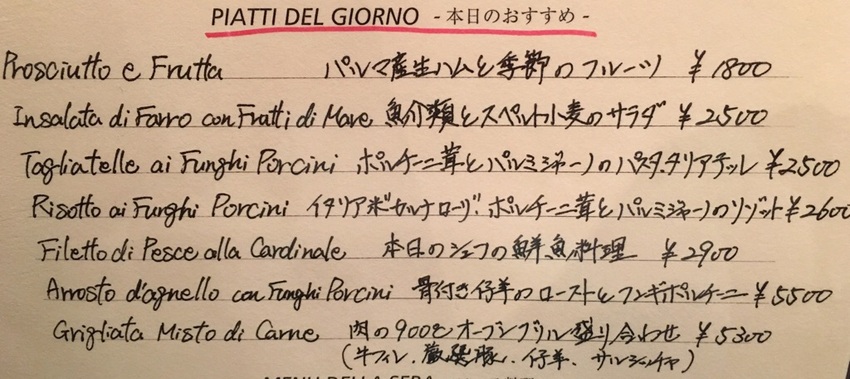 PIATTI DEL GIORNO - 本日のおすすめ -
Prosciutto e Frutta パルマ産生ハムと季節のフルーツ ¥1800
Insalata di Farro con Frutti di Mare 魚介類とスペルト小麦のサラダ ¥2500
Tagliatelle ai Funghi Porcini ポルチーニ茸とパルミジャーノのパスタ.タリアテッレ ¥2500
Risotto ai Funghi Porcini イタリア米カルナローリ. ポルチーニ茸とパルミジャーノのリゾット ¥2600
Filetto di Pesce alla Cardinale 本日のシェフの鮮魚料理 ¥2900
Arrosto d'agnello con Funghi Porcini 骨付き仔羊のローストとフンギポルチーニ ¥5500
Grigliata Misto di Carne 肉の900gオーブングリル盛り合わせ ¥5300
(牛フィレ. 厳選豚. 仔羊. サルシッチャ)
MENU DELLA SERA